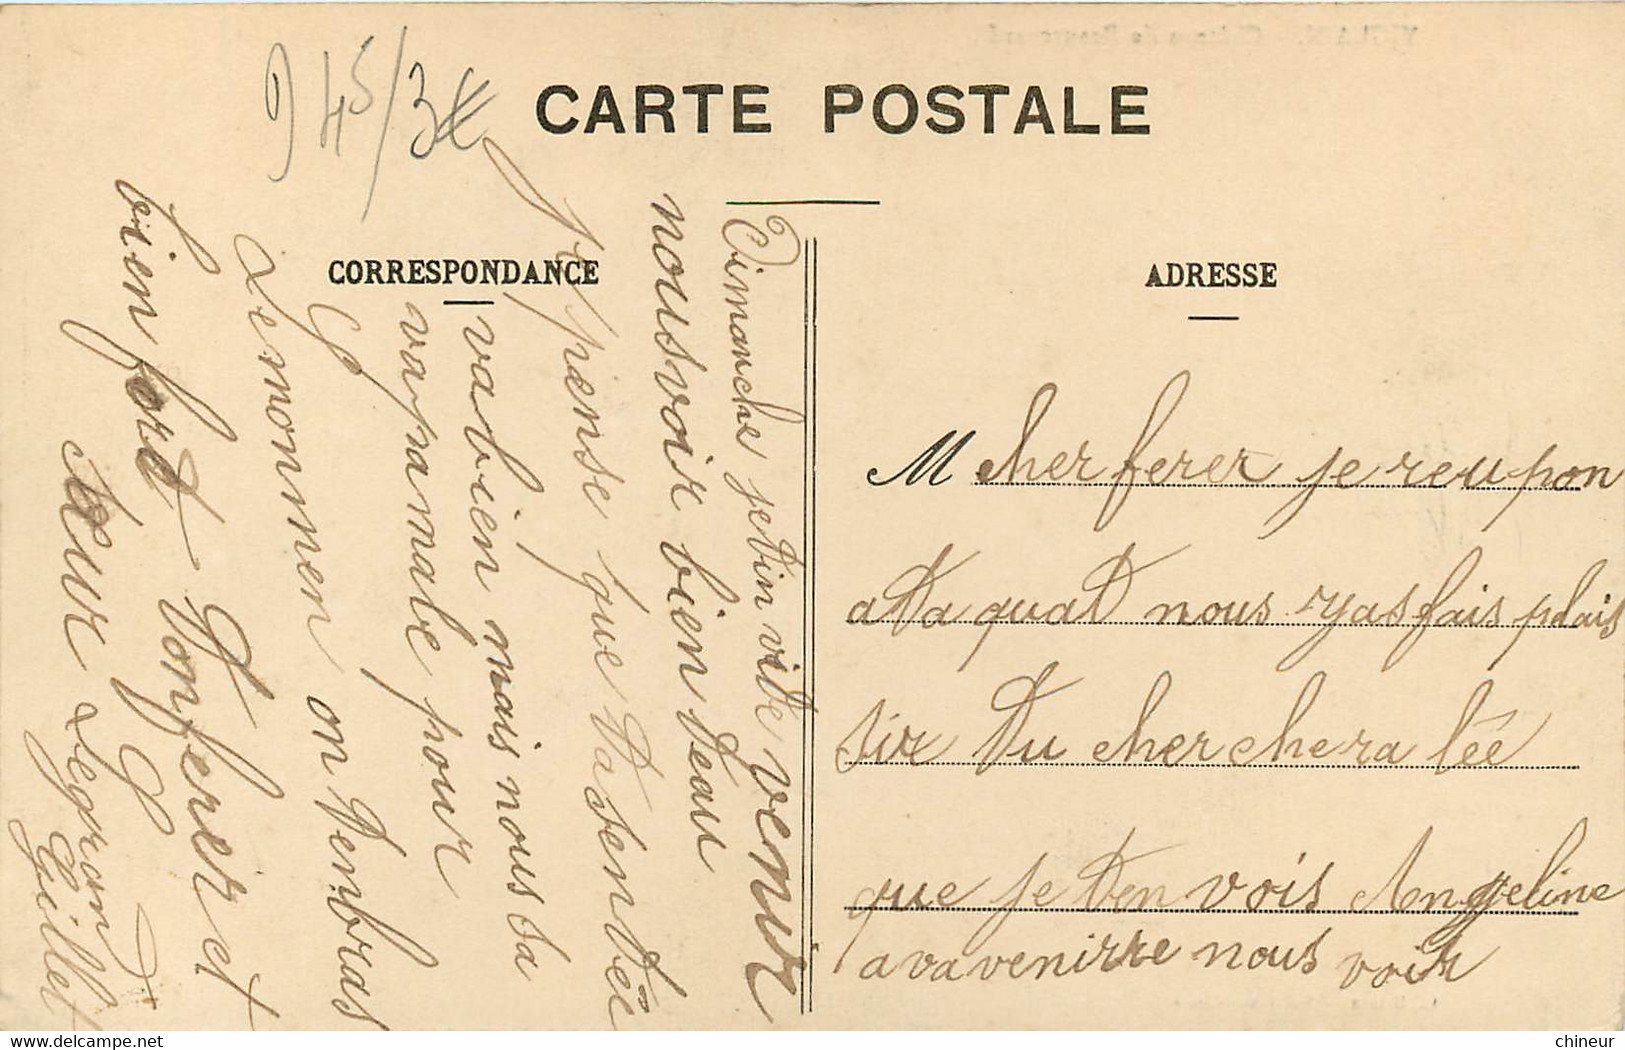 945/3€
CARTE POSTALE
CORRESPONDANCE
ADRESSE
M cher ferer je reupon
a ta quat nous zyas fais plais
sir tu cherchera lée
que je ten vois Angeline
avavenirre nous voir
Dimanche jetin vite venir
nousvoir bien teau
Je pense que tasentée
vabien mais nous sa
vapamale pour
Lemonmen on tenbras
bien fort tonferer et
saeur Legrand
Gillet
chineur